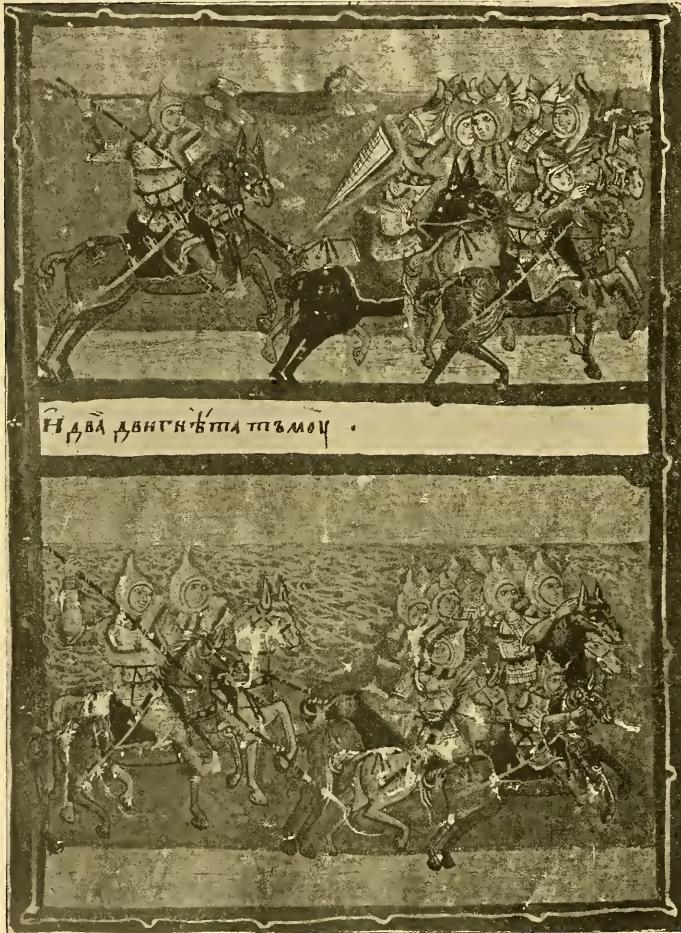 И два двигнѣта тъмоу .